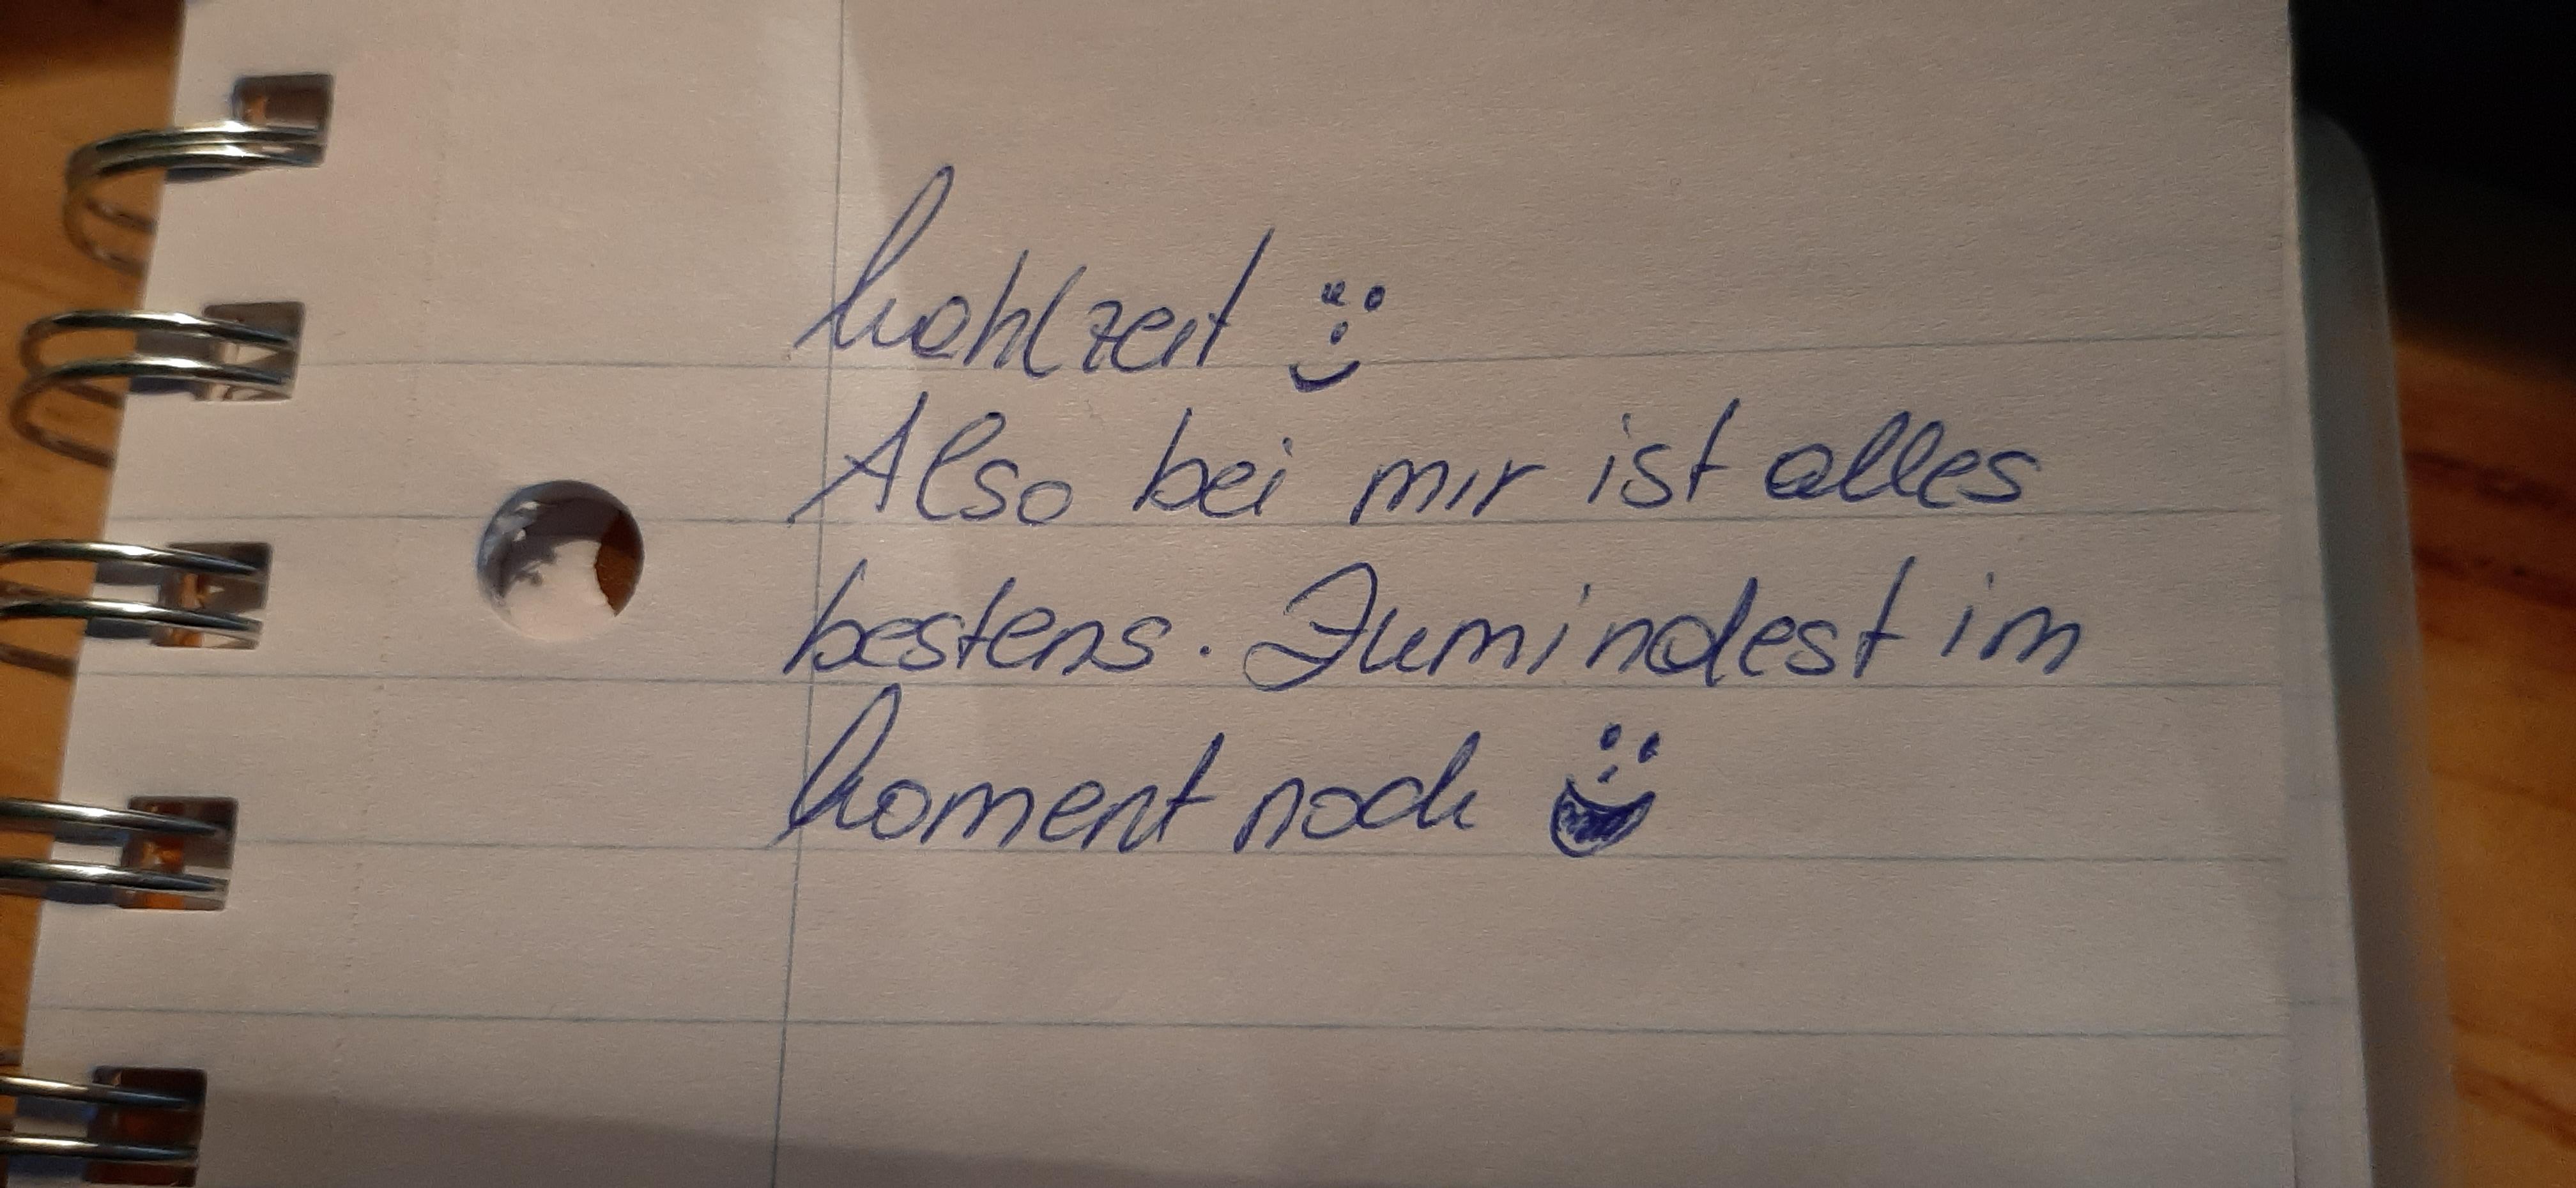 Mahlzeit :)
Also bei mir ist alles
bestens. Zumindest im
Moment noch :D